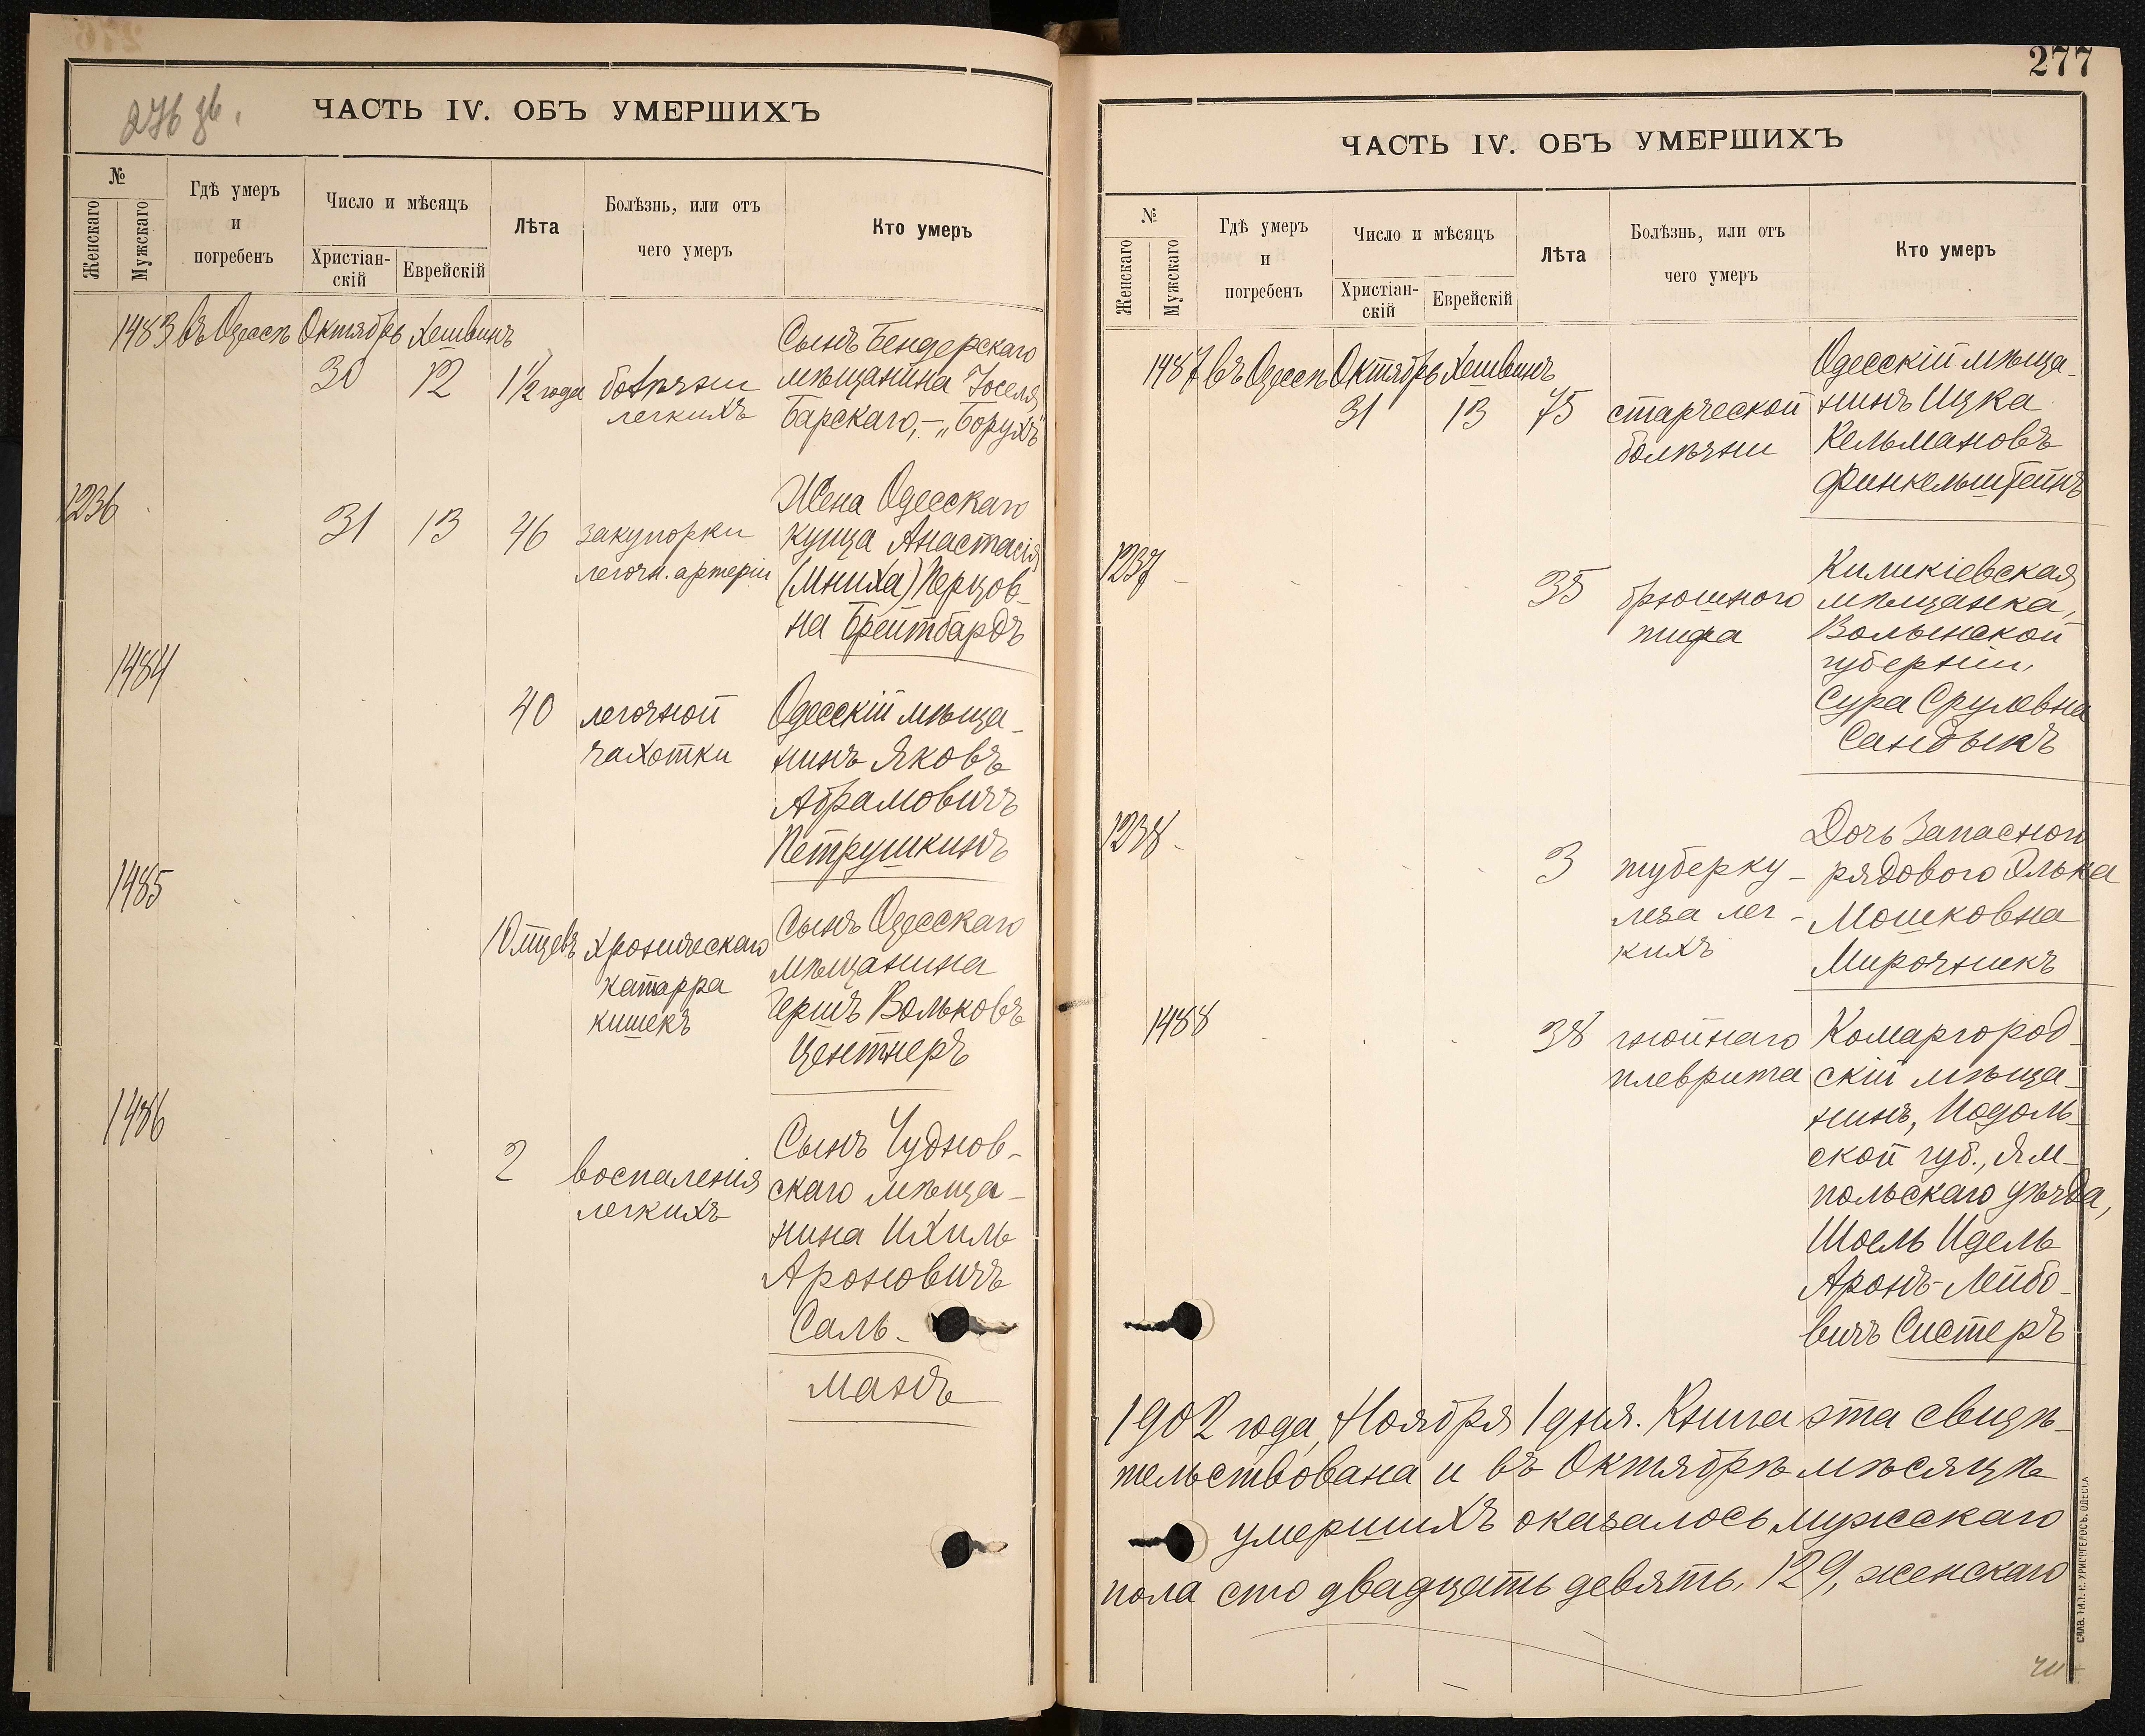 276 зв.
ЧАСТЬ IV. ОБЪ УМЕРШИХЪ
№
Женскаго
Мужскаго
Гдѣ умеръ
и
погребенъ
Число и мѣсяцъ
Христіан-
скій
Еврейскій
Лѣта
Болѣзнь, или отъ
чего умеръ
Кто умеръ
1483 въ Одессѣ Октябрь Хешвинъ
30 12 1½ года болѣзни
легкихъ
Сынъ Бендерскаго
мѣщанина Іоселя
Барскаго, - „Борухъ"
1236
31 13 46 закупорки
легочн. артеріи
Жена Одесскаго
купца Анастасія
(Мниха) Перцов-
на Брейтбардъ
1484
40 легочной
чахотки
Одесскій мѣща-
нинъ Яковъ
Абрамовичъ
Петрушкинъ
1485
10 мцевъ хроническаго
катарра
кишекъ
Сынъ Одесскаго
мѣщанина
Гершъ Вольковъ
Центнеръ
1486
2 воспаленія
легкихъ
Сынъ Чуднов-
скаго мѣща-
нина Ихиль
Ароновичъ
Саль-
манъ
277
ЧАСТЬ IV. ОБЪ УМЕРШИХЪ
№
Женскаго
Мужскаго
Гдѣ умеръ
и
погребенъ
Число и мѣсяцъ
Христіан-
скій
Еврейскій
Лѣта
Болѣзнь, или отъ
чего умеръ
Кто умеръ
1487 въ Одессѣ Октябрь Хешвинъ
31 13 75 старческой
болѣзни
Одесскій мѣща-
нинъ Ицка
Кельмановъ
Финкельштейнъ
1237
35 брюшного
тифа
Киликіевская
мѣщанка,
Волынской
губерніи,
Сура Срулевна
Сандыкъ
1238
3 туберку-
леза лег-
кихъ
Дочь запасного
рядового Элька
Мошковна
Мирочникъ
1488
38 гнойнаго
плеврита
Комаргород-
скій мѣща-
нинъ, Подоль-
ской губ., Ям-
польскаго уѣзда,
Шоель Идель
Аронъ-Лейбо-
вичъ Систеръ
1902 года, Ноября 1 дня. Книга эта свидѣ-
тельствована и въ Октябрѣ мѣсяцѣ
умершихъ оказалось мужскаго
пола сто двадцать девять, 129, женскаго